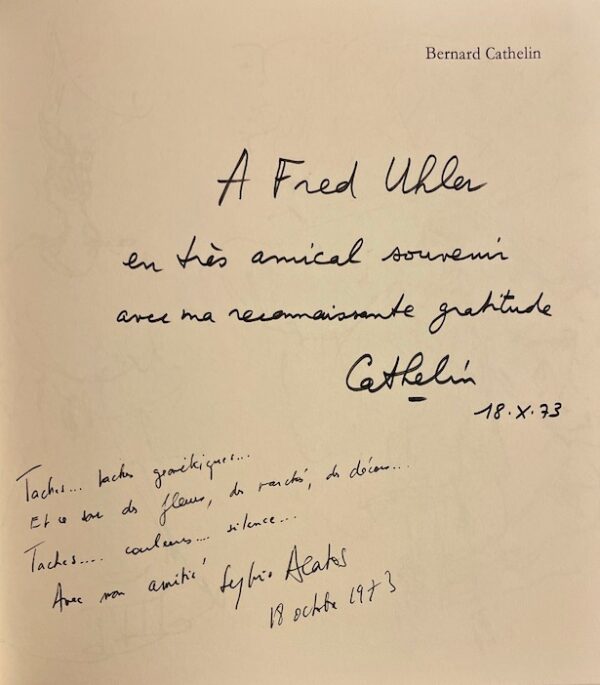 Bernard Cathelin
A Fred Uhler
en très amical souvenir
avec ma reconnaissante gratitude
Cathelin
18.X.73
Taches... taches géométriques...
Et ce sont des fleurs, des marchés, des décors...
Taches.... couleurs.... silence...
Avec mon amitié Sylvio Acatos
18 octobre 1973